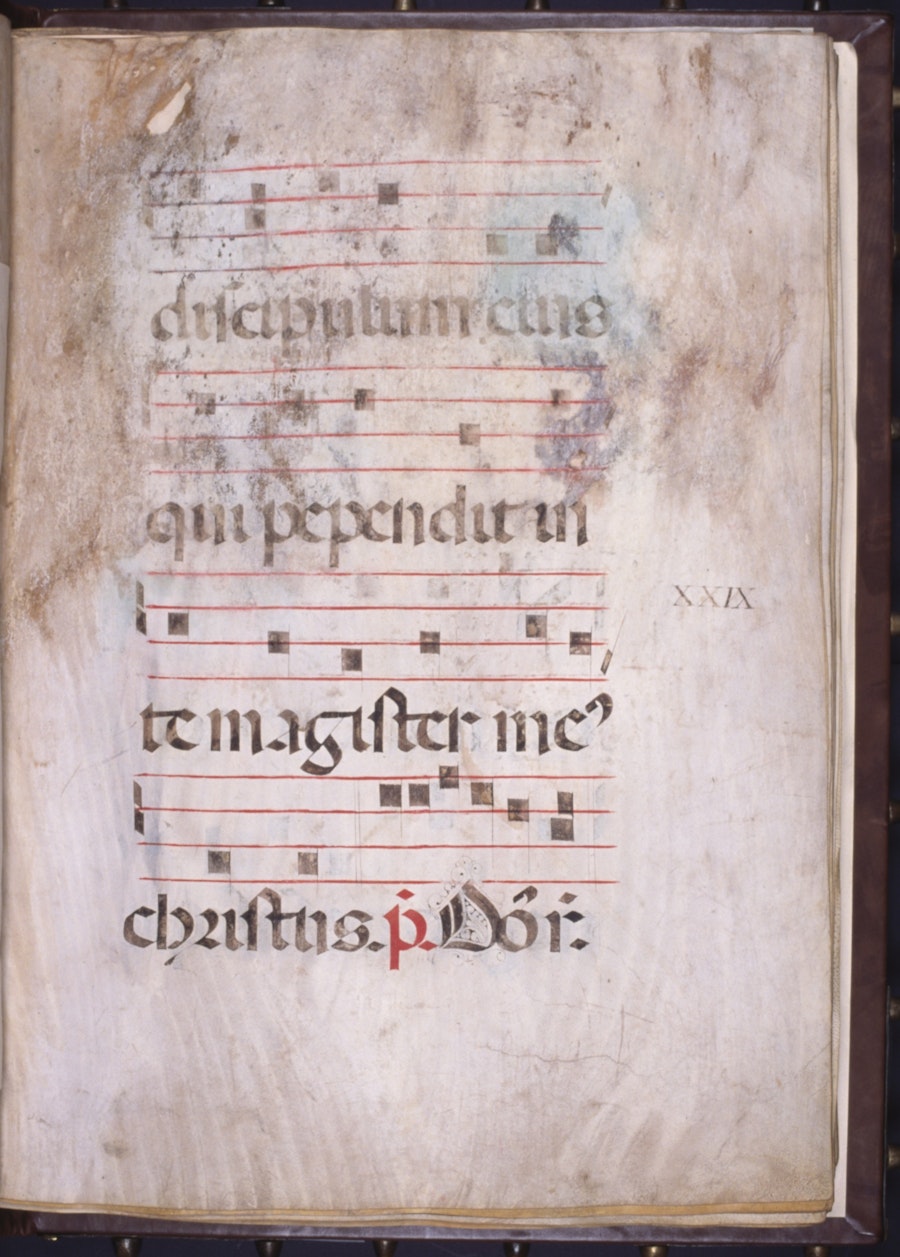 discipulum eius
qui pependit in
XXIX
te magister me⁹
christus. p̄. Dõr̃.